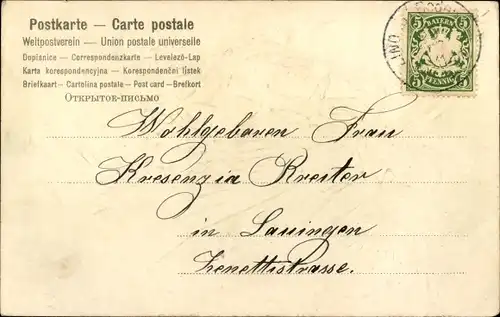 Postkarte — Carte postale
Weltpostverein — Union postale universelle
Dopisnice — Correspondenzkarte — Levelező-Lap
Karta korespondencyjna — Korespondenční lístek
Briefkart — Cartolina postale — Post card — Brefkort
Открытое-письмо
5 BAYERN 5
5 PFENNIG 5
Wohlgebaren Frau
Kresenzia Kreiter
in Lauingen
Zenettistrasse.